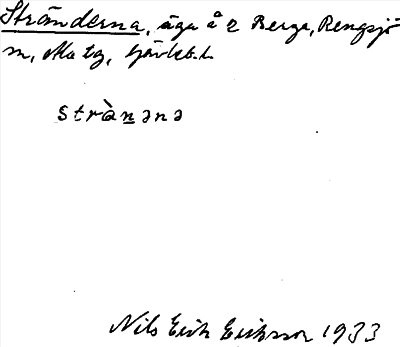 Stränderna, äga å 2 Berge, Rengsjö
sn, Alata, Gävleb.l.
strànənə
Nils Erik Eriksson 1933